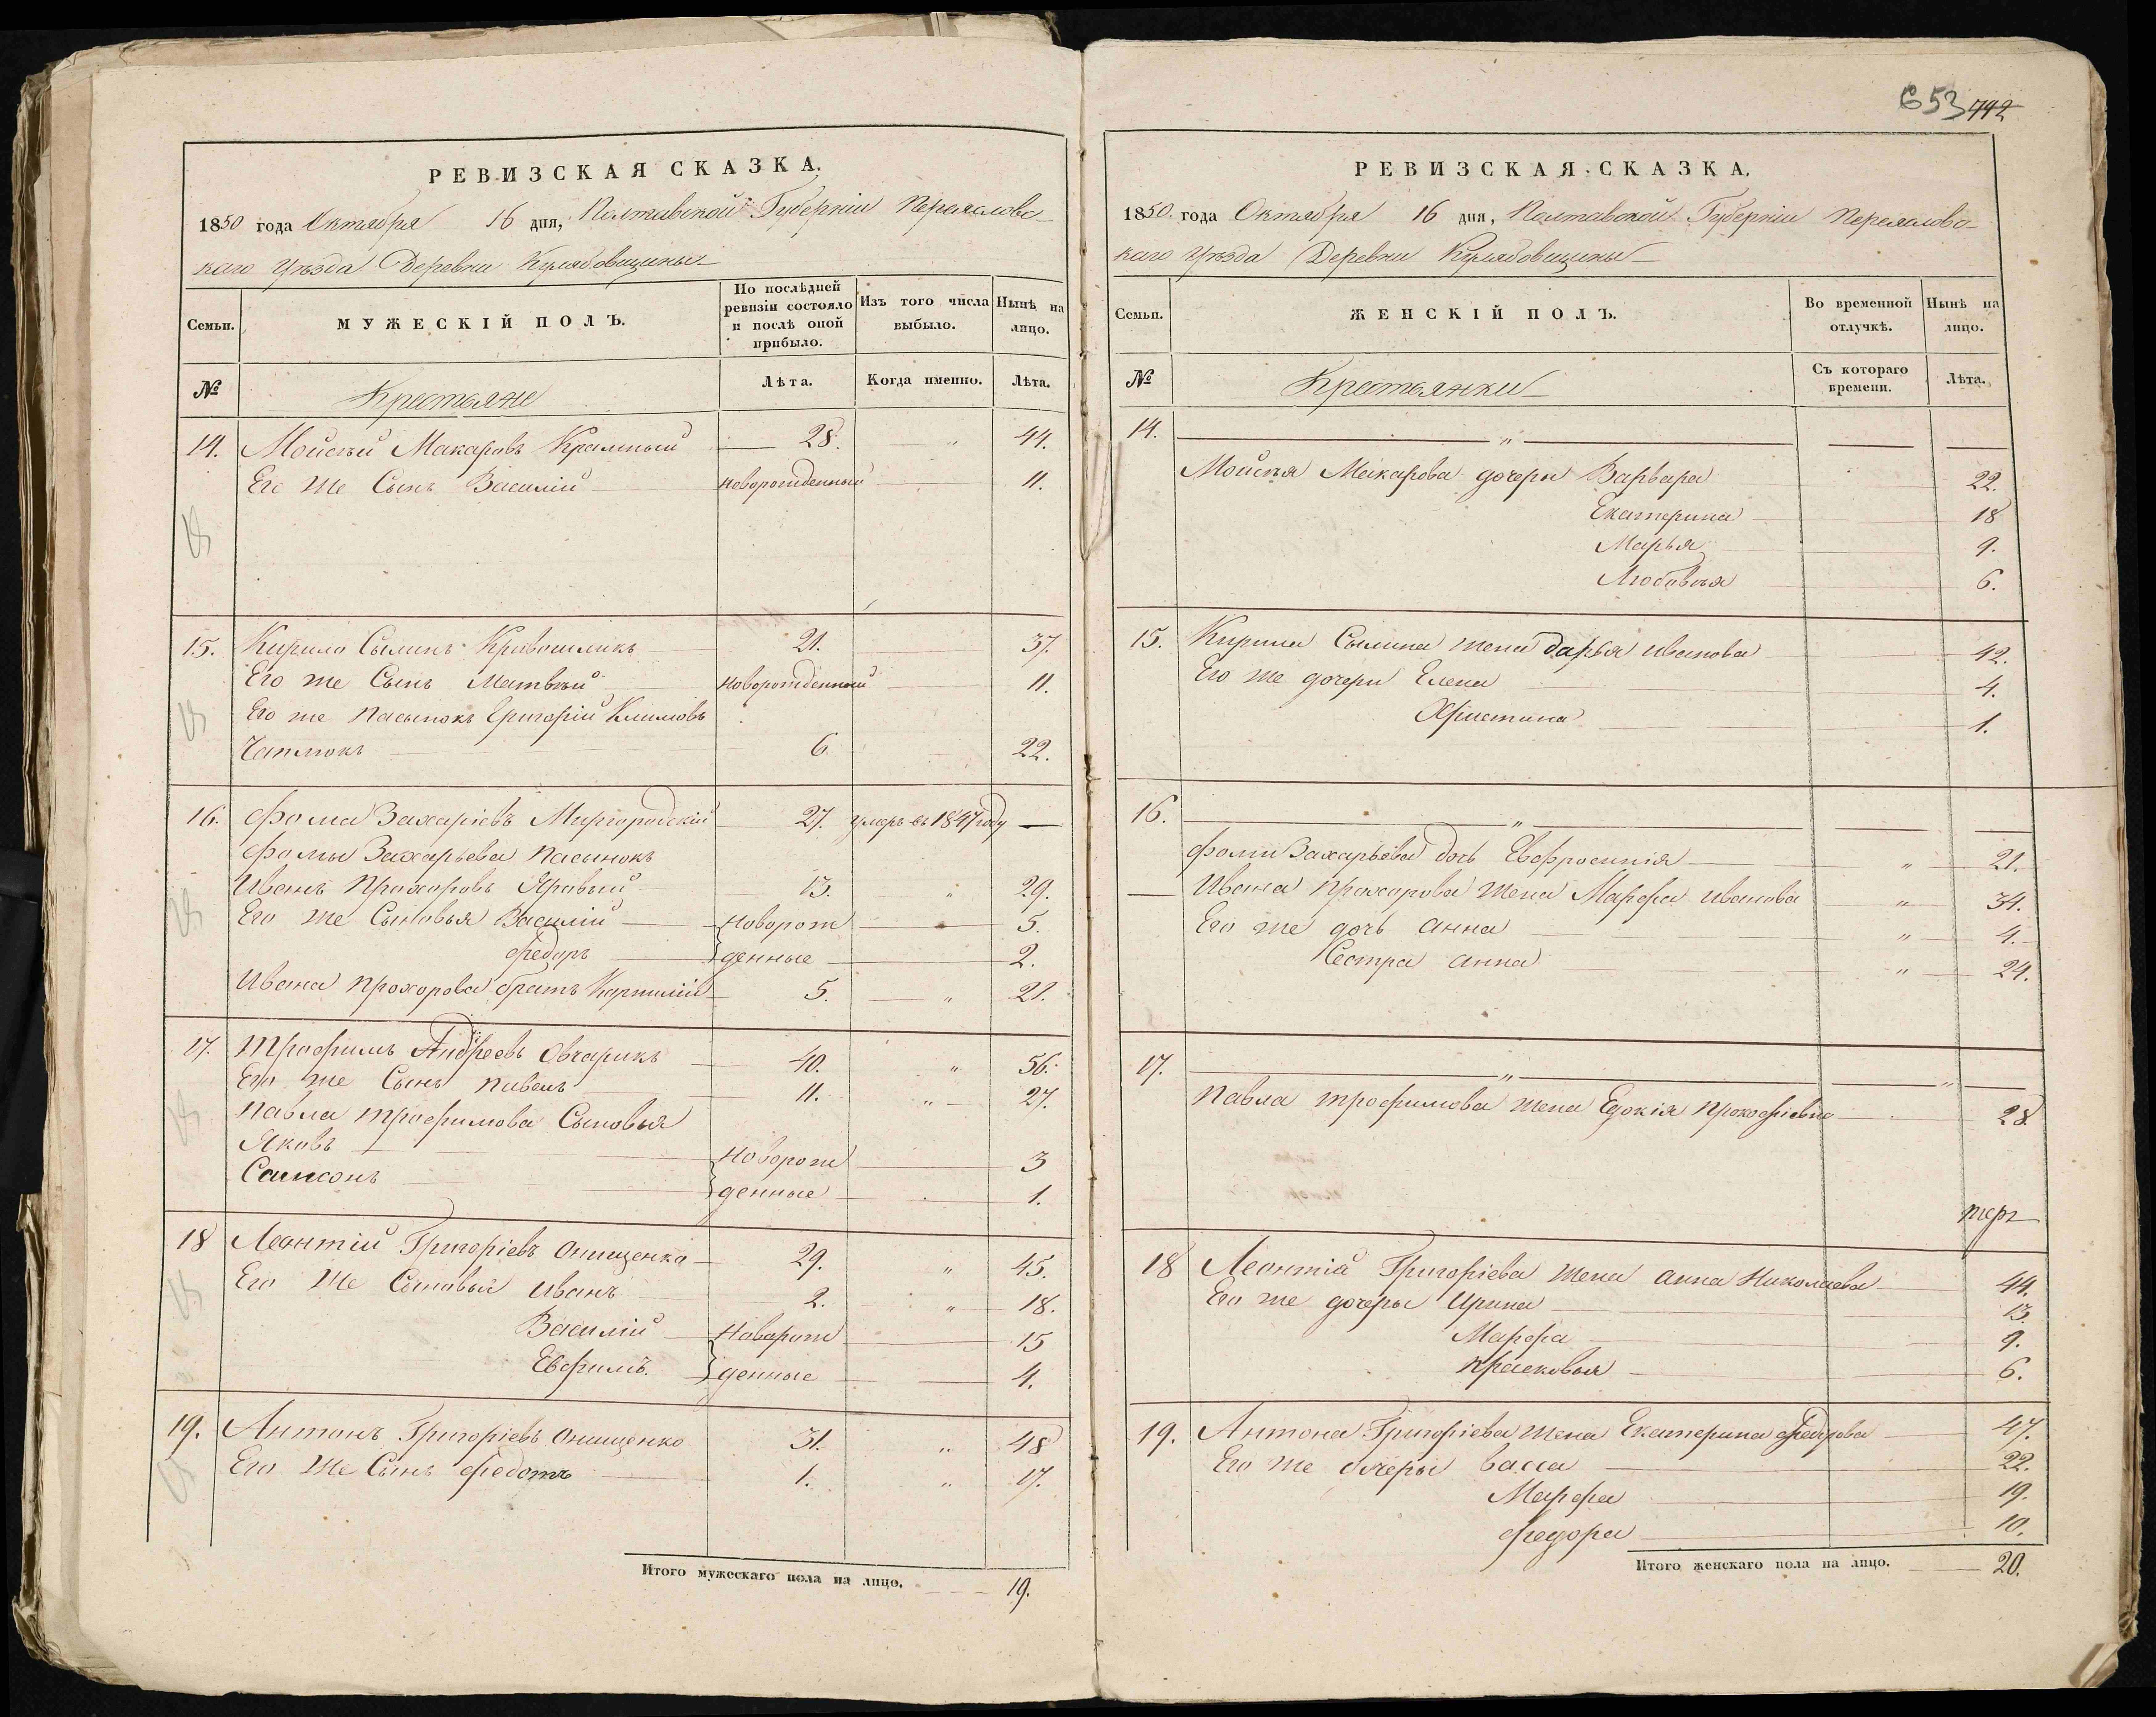 РЕВИЗСКАЯ СКАЗКА.
1850 года Октября 16 дня, Полтавской Губерніи Переяслово
каго Уѣзда Деревни Кулябовщины
Семьи.
МУЖЕСКІЙ ПОЛЪ.
По послѣдней ревизіи состояло и послѣ оной прибыло.
Изъ того числа выбыло.
Нынѣ на лицо.
№
Крестьяне
Лѣта.
Когда именно.
Лѣта.
14. Мойсѣй Макаровъ 28. " 44.
Его же Сынъ Василій новорожденный 11.
15. Кирило 21. 37.
Его же Сынъ Матвѣй новорожденный 11.
Его же пасынокъ Григорій Климовъ
Чаплюкъ 6 22.
16. Фома Захаріевъ Миргородскій 27. умеръ въ 1847 году —
Фомы Захарьева пасынокъ
Иванъ Прохоровъ Яровый 13. " 29.
Его же Сыновья Василій новорож 5.
Федоръ денные 2.
Ивана Прохорова братъ 5. " 21.
17. Трофимъ Андреевъ Овчарикъ 40. " 56.
Его же Сынъ Павелъ 11. " 27.
Павла Трофимова Сыновья
Яковъ новорож 3
Самсонъ денные 1.
18 Леонтій Григоріевъ Онищенко 29. " 45.
Его же Сыновья Иванъ 2. " 18.
Василій новорож 15
Евфимъ. денные 4.
19. Антонъ Григоріевъ Онищенко 31. " 48
Его же Сынъ Федотъ 1. " 17.
Итого мужескаго пола на лицо. 19.
653 742
РЕВИЗСКАЯ СКАЗКА.
1850. года Октября 16 дня, Полтавской Губерніи Переяслово
каго Уѣзда Деревни Кулябовщины
Семьи.
ЖЕНСКІЙ ПОЛЪ.
Во временной отлучкѣ.
Нынѣ на лицо.
№
Крестьянки
Съ котораго времени.
Лѣта.
14. "
Мойсѣя Макарова дочери Варвара 22.
Екатерина 18
Марья 9.
6.
15. Кирила жена Дарья Иванова 42.
Его же дочери Елена 4.
Христина 1.
16. "
Фомы Захарьева дочь Евфросинія " 21.
Ивана Прохорова жена Марфа Иванова " 34.
Его же дочь Анна " 4.
Сестра Анна " 24.
17. " "
Павла Трофимова жена Прокофіевна 28
18 Леонтія Григоріева жена Анна Николаева 44.
Его же дочеры Ирина 13.
Марфа 9.
Прасковья 6.
19. Антона Григоріева жена Екатерина Федорова 47.
Его же дочеры Васса 22.
Марфа 19.
Федора 10.
Итого женскаго пола на лицо. 20.